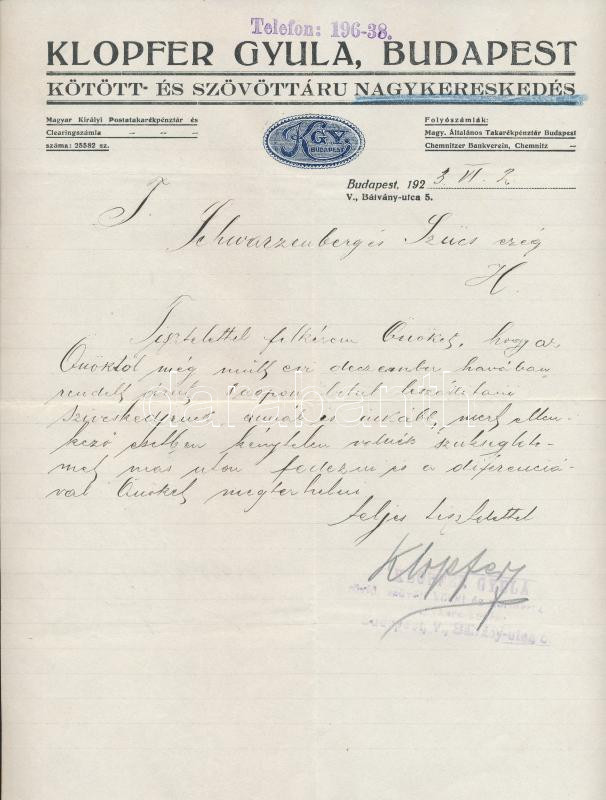 Telefon: 196-38.
KLOPFER GYULA, BUDAPEST
KÖTÖTT- ÉS SZÖVÖTTÁRU NAGYKERESKEDÉS
Magyar Királyi Postatakarékpénztár és
Clearingszámla
száma: 25582 sz.
KGY.
BUDAPEST
Folyószámlák:
Magy. Általános Takarékpénztár Budapest
Chemnitzer Bankverein, Chemnitz
Budapest, 192 3. VI. 2
V., Bálvány-utca 5.
T.
Schwarzenberg és Szücs czég
H.
Tisztelettel felkérem Önöket, hogy az
Önöktől még mult évi deczember havában
rendelt
sziveskedjenek annál is inkább, mert ellen-
kező esetben kénytelen volnék szükségle-
met más uton fedezni és a diferenciá-
val Önöket megterhelni
teljes tisztelettel
Klopfer
KLOPFER GYULA
Budapest, V., Bálvány-utca 5.